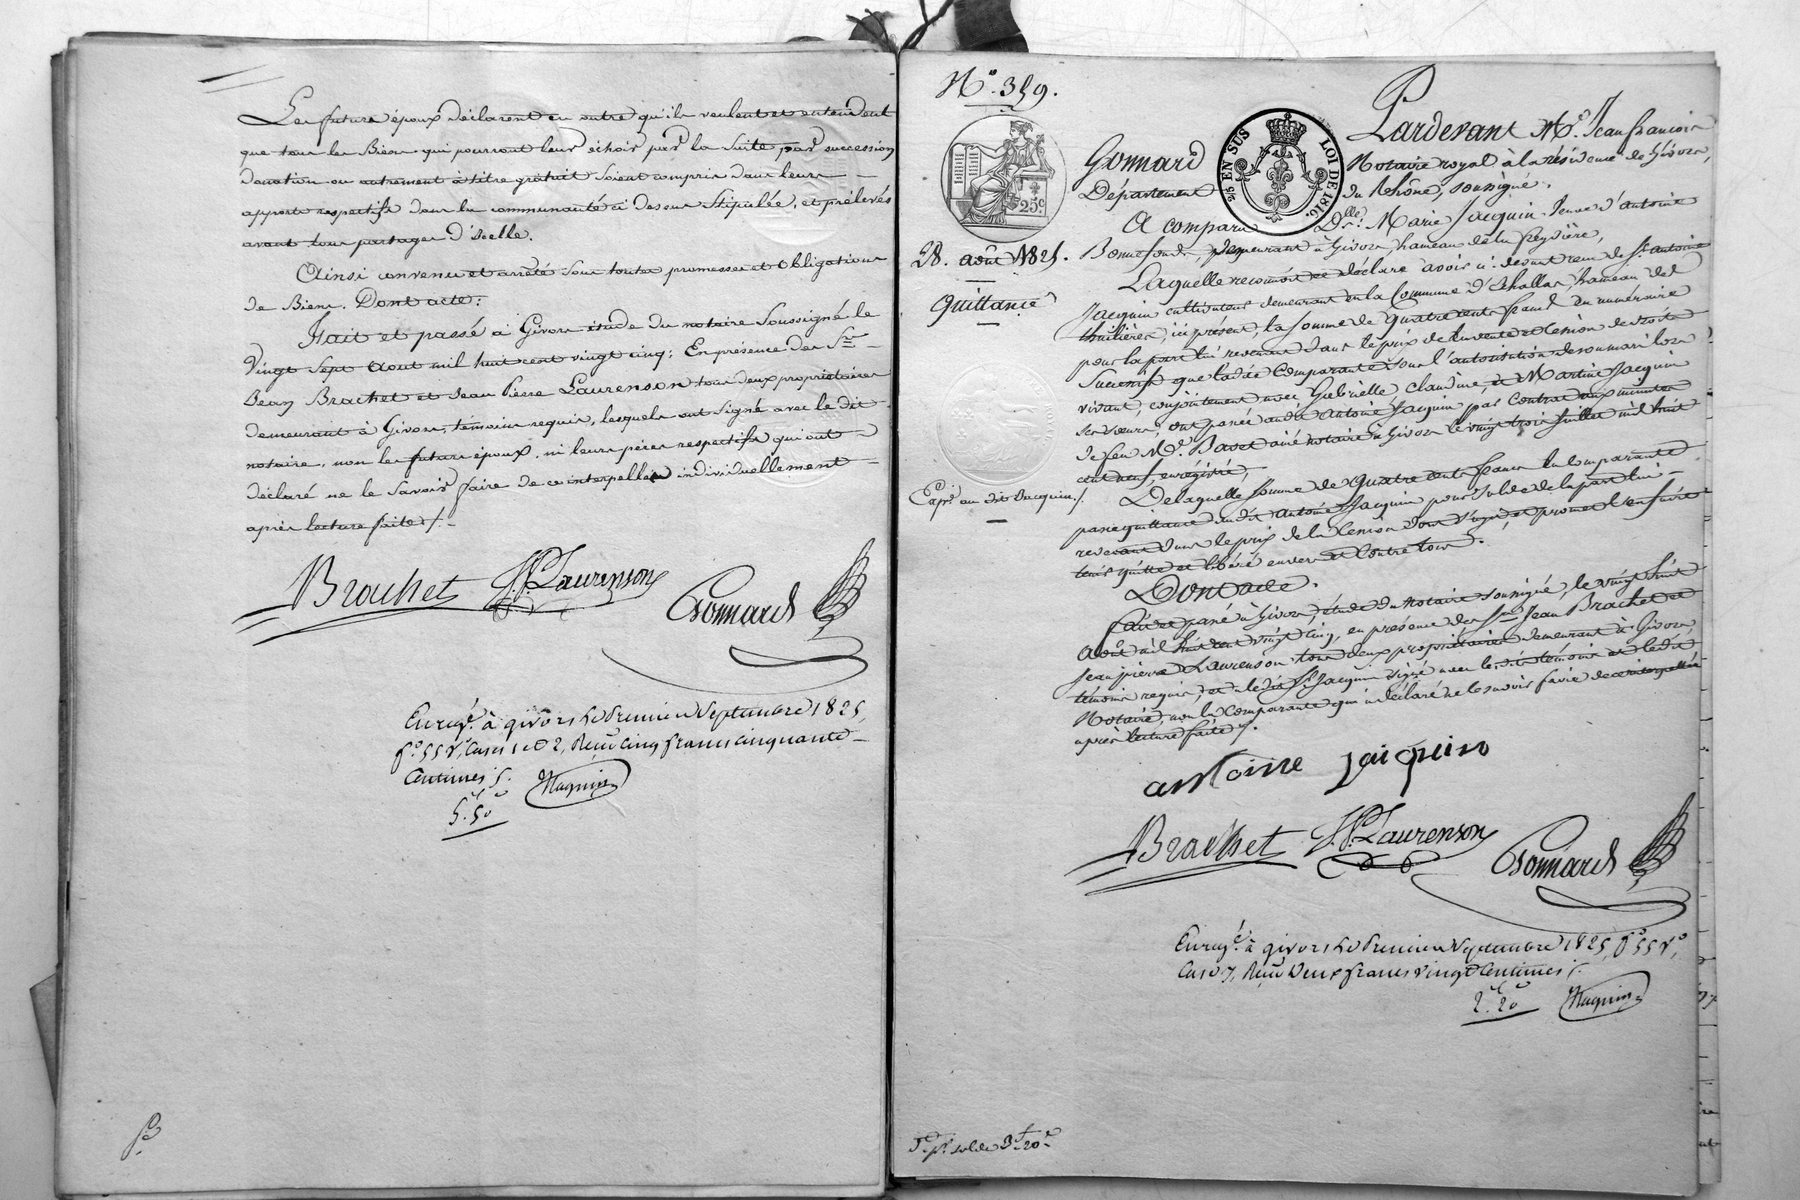 Les futurs époux déclarent en outre qu'ils veulent et entendent
que tous les Biens qui pourront leurs échoir par la suite par succession
donation ou autrement à titre gratuit soient compris dans leurs
apports respectifs dans la communauté ci dessus Stipulée, et prélevés
avant tous partages d'Icelle.
Ainsi convenu et arrêté sous toutes promesses et Obligations
de Biens. Dont acte.
Fait et passé à Givors étude du notaire Soussigné le
Vingt Sept Aout mil huit cent vingt cinq; En présence des Srs
Jean Brachet et Jean Pierre Laurenson tous deux propriétaires
demeurant à Givors, témoins requis, lesquels ont signé avec le dit
notaire, non les futurs époux, ni leurs pères respectifs qui ont
déclaré ne le savoir faire de ce interpellés individuellement
après lecture faite /.
Brachet J. P. Laurenson Gonnard
Enregé. à givors le Premier Septembre 1825,
fo. 55 Vo, Cases 1 et 2, Reçu Cinq francs cinquante
Centimes /.
5. 50 Naquin
No. 359.
25 EN SUS LOI DE 1816.
25c.
28. août 1825.
Quittance
Expn. au dit Jacquin /.
Pardevant Me. Jean françois
Gonnard Notaire royal à la résidence de Givors,
Département du Rhône, soussigné.
A comparu Dlle. Marie Jacquin Veuve d'antoine
Bonnefond, demeurant à Givors, hameau de la freydière,
Laquelle reconnoit et déclare avoir ci devant reçu de Sr. antoine
Jacquin cultivateur demeurant en la Commune d'Echallas, hameau des
thuilières, ici présent, la somme de quatre cents francs en numéraire
pour la part lui revenant dans le prix de la vente et cession de droits
Successifs que ladte. Comparante sous l'autorisation de son mari lors
vivant, conjointement avec Gabrielle, claudine et Martine Jacquin
ses sœurs, ont passée audit Antoine Jacquin, par Contrat aux minutes
de feu Me. Basset ainé notaire à Givors le vingt trois Juillet mil huit
cent neuf, enregistré,
De laquelle somme de quatre cents francs la Comparante
passe quittance audit antoine Jacquin pour Solde de la part lui
revenant dans le prix de la Cession dont s'agit et promet l'en faire
tenir quitte et libéré envers et Contre tous.
Dont acte.
fait et passé à Givors, étude du Notaire soussigné, le vingt huit
Août mil huit cent vingt cinq, en présence des Srs Jean Brachet et
Jean pierre Laurenson tous deux propriétaires demeurant à Givors,
témoins requis, et le dit Sr. Jacquin signé avec les dits témoins et le dit
Notaire, non la Comparante qui a déclaré ne le savoir faire de ce interpellée
après lecture faite /.
antoine jaiquin
Brachet J. P. Laurenson Gonnard
Enregé. à givors le Premier Septembre 1825, fo. 55 Vo,
Case 7, Reçu Deux francs vingt Centimes /.
2. 20 Naquin
solde 3f. 20c